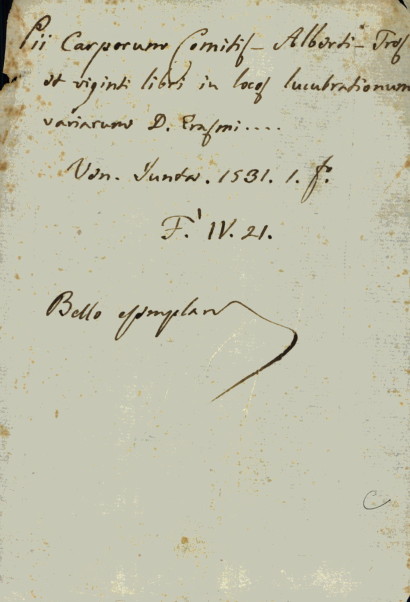 Pii Carporum Comitis - Alberti - Tres
et viginti libri in locos lucubrationum
variarum D. Erasmi....
Ven. Junta. 1531. 1. f.º
F.' IV. 21.
Bello esemplare
C